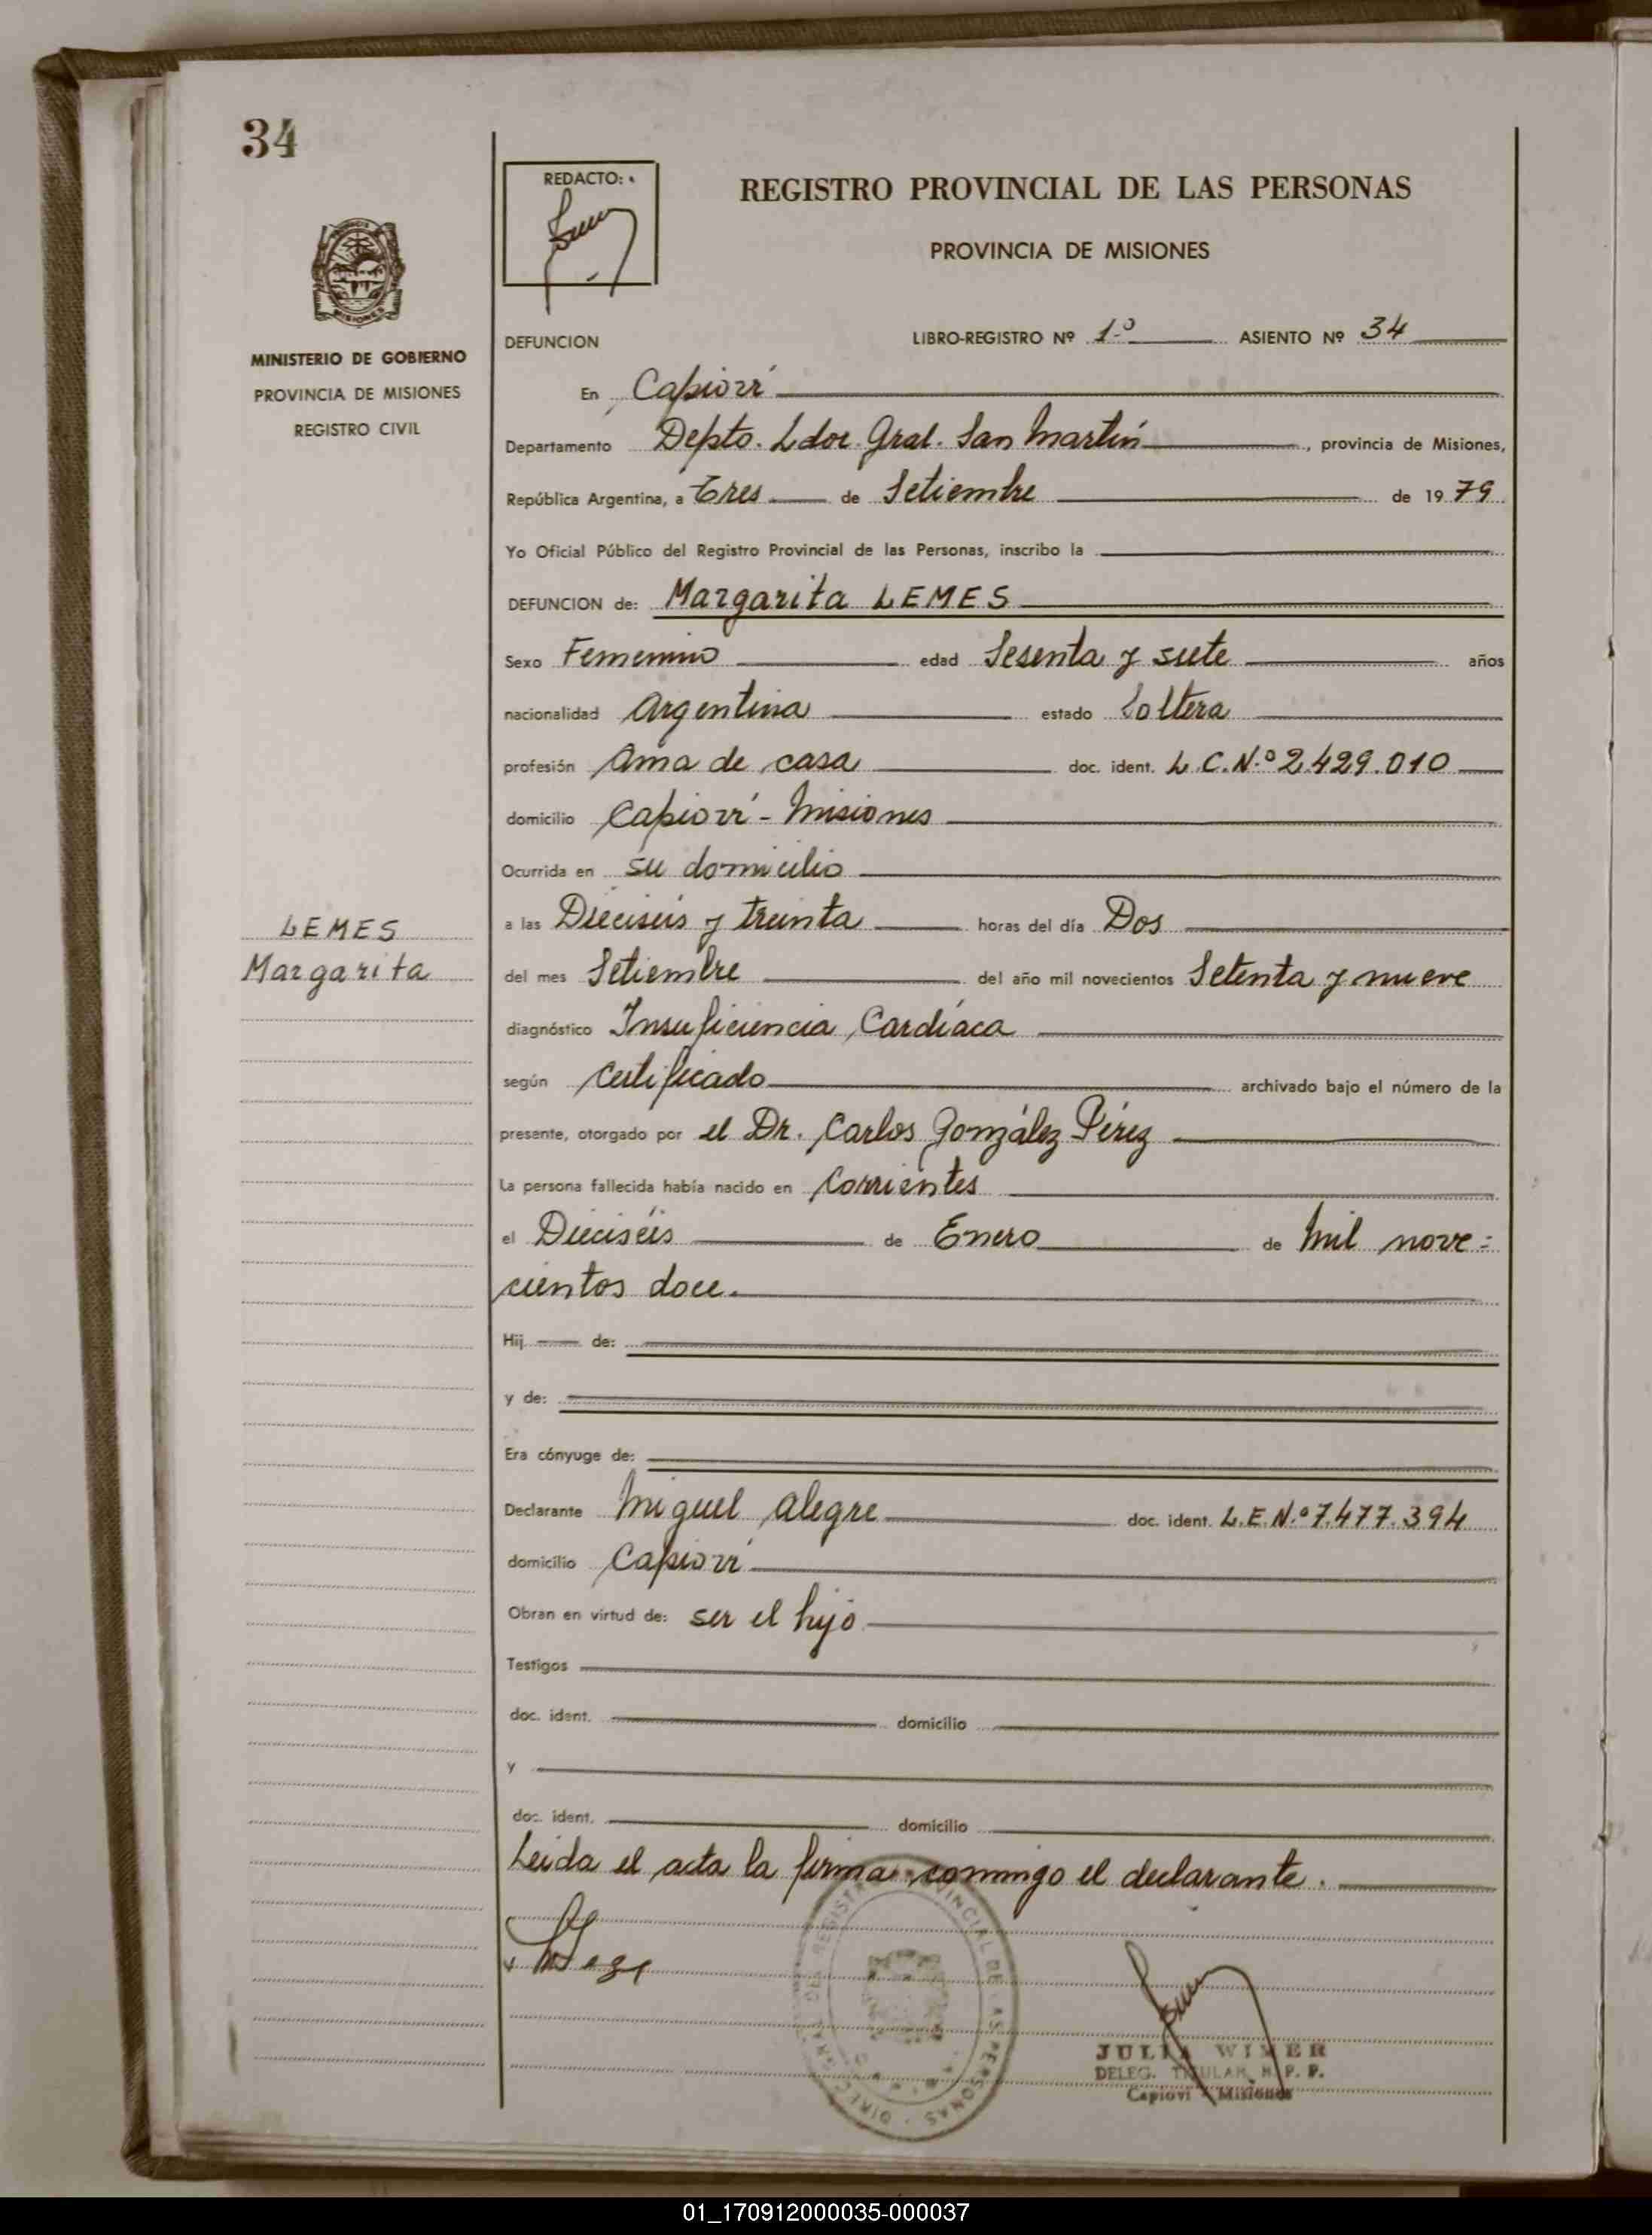 34
REDACTO:
REGISTRO PROVINCIAL DE LAS PERSONAS
PROVINCIA DE MISIONES
MISIONES
MINISTERIO DE GOBIERNO
PROVINCIA DE MISIONES
REGISTRO CIVIL
DEFUNCION LIBRO-REGISTRO Nº 1º ASIENTO Nº 34
En Capioví
Departamento Depto. Ldor. Gral. San Martín, provincia de Misiones,
República Argentina, a Tres de Setiembre de 1979
Yo Oficial Público del Registro Provincial de las Personas, inscribo la
DEFUNCION de: Margarita LEMES
Sexo Femenino edad Sesenta y siete años
nacionalidad Argentina estado Soltera
profesión Ama de casa doc. ident. L.C.N.º 2.429.010
domicilio Capioví - Misiones
Ocurrida en su domicilio
LEMES
Margarita
a las Dieciseis y treinta horas del día Dos
del mes Setiembre del año mil novecientos Setenta y nueve
diagnóstico Insuficiencia Cardíaca
según Certificado archivado bajo el número de la
presente, otorgado por el Dr. Carlos González Pérez
La persona fallecida había nacido en Corrientes
el Dieciséis de Enero de Mil nove=
cientos doce.
Hij de:
y de:
Era cónyuge de:
Declarante Miguel Alegre doc. ident. L.E.N.º 7.477.394
domicilio Capioví
Obran en virtud de: ser el hijo
Testigos
doc. ident. domicilio
y
doc. ident. domicilio
Leida el acta la firma conmigo el declarante.
JULIA WIMER
DELEG. TITULAR R. P. P.
Capioví - Misiones
01_170912000035-000037